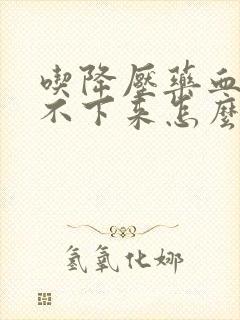 喫降壓藥血
不下來怎麼
氢氧化娜